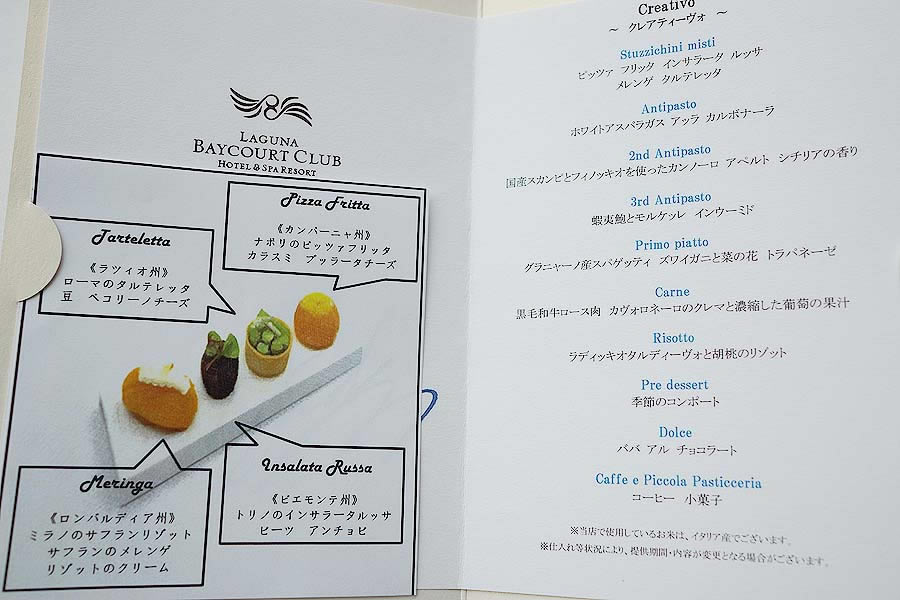 LAGUNA
BAYCOURT CLUB
HOTEL & SPA RESORT
Pizza Fritta
《カンパーニャ州》
ナポリのピッツァフリッタ
カラスミ ブッラータチーズ
Tarteletta
《ラツィオ州》
ローマのタルテレッタ
豆 ペコリーノチーズ
Meringa
《ロンバルディア州》
ミラノのサフランリゾット
サフランのメレンゲ
リゾットのクリーム
Insalata Russa
《ピエモンテ州》
トリノのインサラータルッサ
ビーツ アンチョビ
Creativo
~ クレアティーヴォ ~
Stuzzichini misti
ピッツァ フリッタ インサラータ ルッサ
メレンゲ タルテレッタ
Antipasto
ホワイトアスパラガス アッラ カルボナーラ
2nd Antipasto
国産スカンピとフィノッキオを使ったカンノーロ アペルト シチリアの香り
3rd Antipasto
蝦夷鮑とモルケッレ インウーミド
Primo piatto
グラニャーノ産スパゲッティ ズワイガニと菜の花 トラパネーゼ
Carne
黒毛和牛ロース肉 カヴォロネーロのクレマと濃縮した葡萄の果汁
Risotto
ラディッキオタルディーヴォと胡桃のリゾット
Pre dessert
季節のコンポート
Dolce
ババ アル チョコラート
Caffe e Piccola Pasticceria
コーヒー 小菓子
※当店で使用しているお米は、イタリア産でございます。
※仕入れ等状況により、提供期間・内容が変更となる場合がございます。